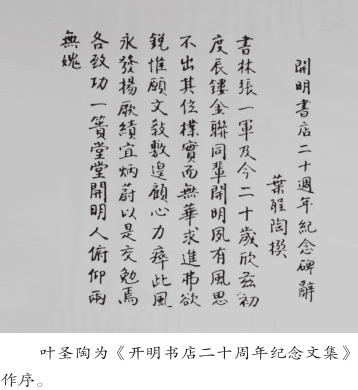 開明書店二十週年紀念碑辭
葉聖陶撰
書林張一軍及今二十歲欣茲初
度辰鏤金聯同輩開明夙有風思
不出其位樸實而無華求進弗欲
銳惟願文教敷遑顧心力瘁此風
永發揚厥績宜炳蔚以是交勉焉
各致功一簣堂堂開明人俯仰兩
無媿
叶圣陶为《开明书店二十周年纪念文集》
作序。